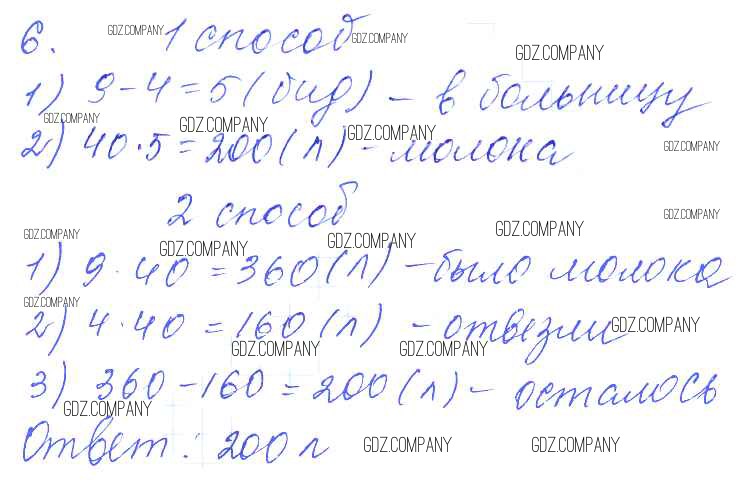 6. GDZ.COMPANY 1 способ GDZ.COMPANY
GDZ.COMPANY
1) 9 - 4 = 5 (бид) - в больницу
GDZ.COMPANY GDZ.COMPANY GDZ.COMPANY
2) 40 · 5 = 200 (л) - молока GDZ.COMPANY
2 способ GDZ.COMPANY
GDZ.COMPANY GDZ.COMPANY GDZ.COMPANY GDZ.COMPANY
1) 9 · 40 = 360 (л) - было молока
GDZ.COMPANY
2) 4 · 40 = 160 (л) - отвезли GDZ.COMPANY
GDZ.COMPANY GDZ.COMPANY
3) 360 - 160 = 200 (л) - осталось
GDZ.COMPANY
Ответ: 200 л GDZ.COMPANY GDZ.COMPANY